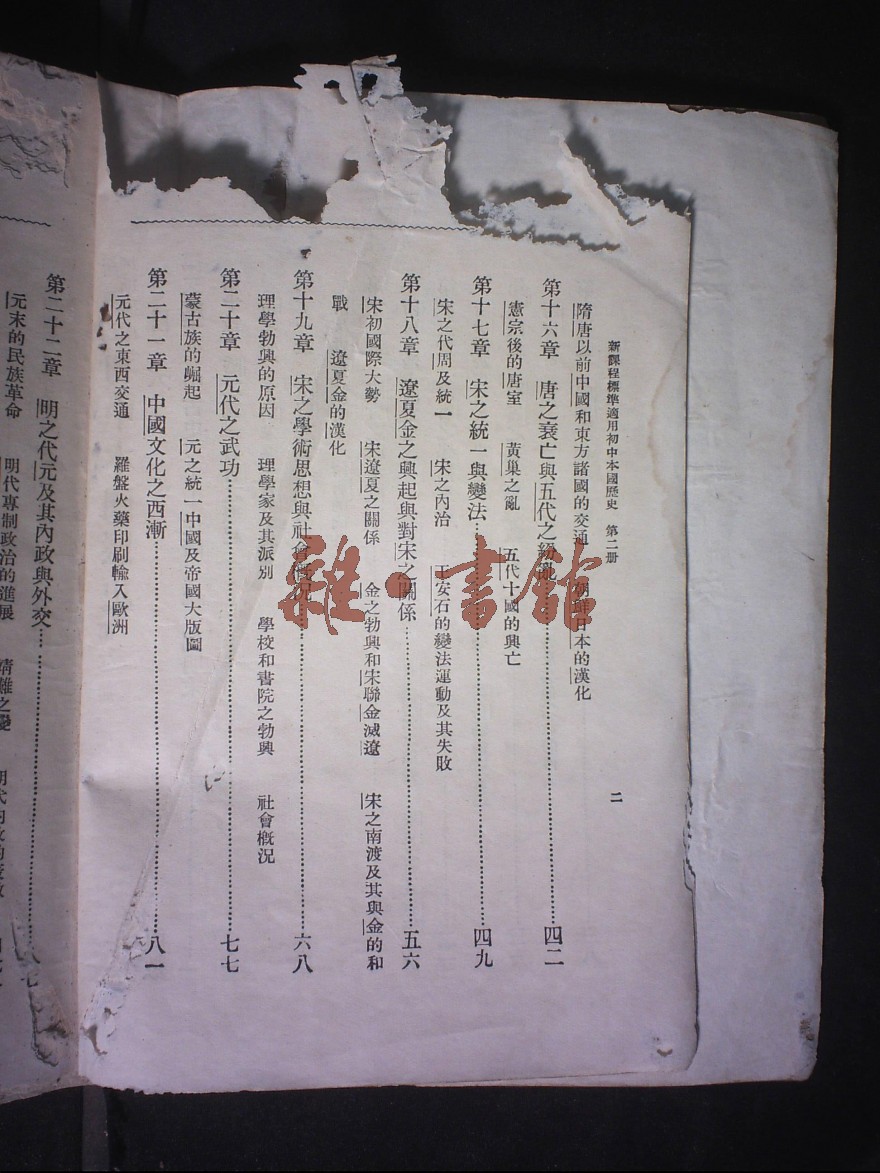 新課程標準適用初中本國歷史　第二册　二
隋唐以前中國和東方諸國的交通　朝鮮日本的漢化
第十六章　唐之衰亡與五代之紛亂……四二
憲宗後的唐室　黃巢之亂　五代十國的興亡
第十七章　宋之統一與變法……四九
宋之代周及統一　宋之內治　王安石的變法運動及其失敗
第十八章　遼夏金之興起與對宋之關係……五六
宋初國際大勢　宋遼夏之關係　金之勃興和宋聯金滅遼　宋之南渡及其與金的和
戰　遼夏金的漢化
第十九章　宋之學術思想與社會概況……六八
理學勃興的原因　理學家及其派別　學校和書院之勃興　社會概況
第二十章　元代之武功……七七
蒙古族的崛起　元之統一中國及帝國大版圖
第二十一章　中國文化之西漸……八一
元代之東西交通　羅盤火藥印刷輸入歐洲
第二十二章　明之代元及其內政與外交……八七
元末的民族革命　明代專制政治的進展　靖難之變
雜·書館